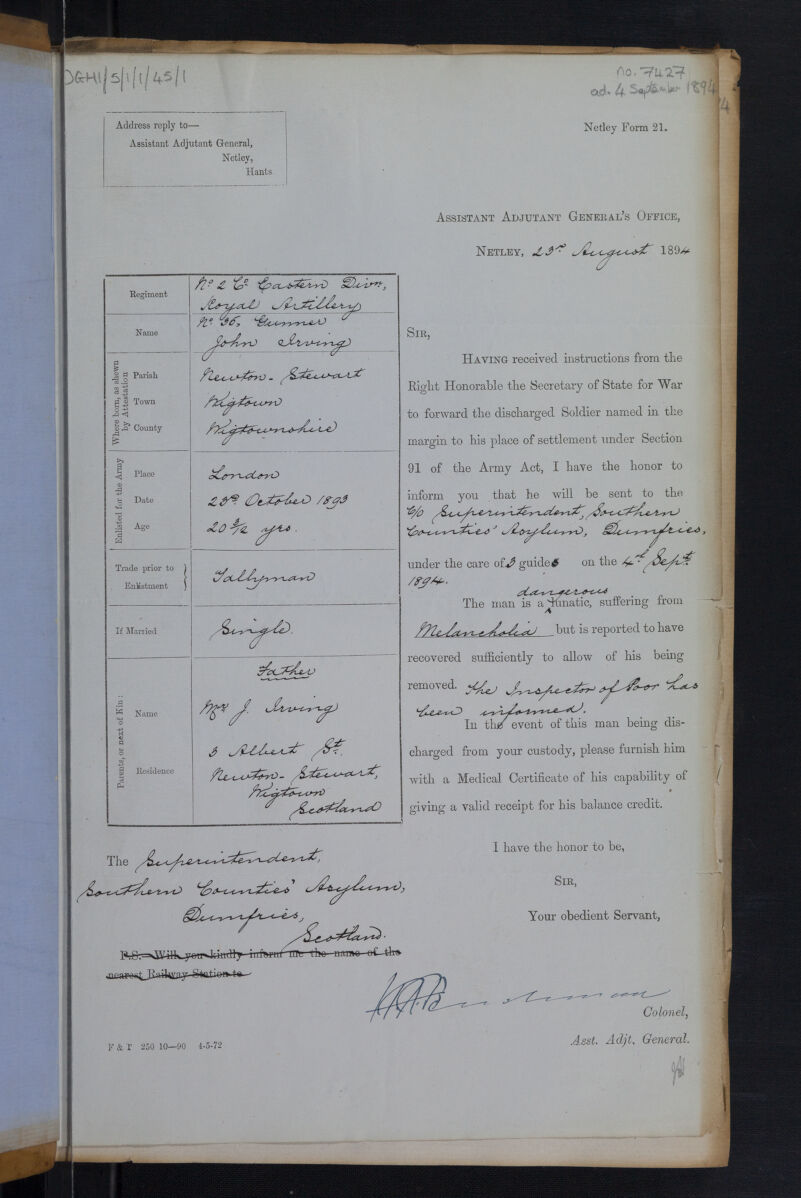 DGH1/5/1/1/45/1
no. 7427
ad. 4 September 1894
Address reply to—
Assistant Adjutant General,
Netley,
Hants
Netley Form 21.
Assistant Adjutant General's Office,
Netley, 23rd August 1894
Regiment
No 2 Co Eastern Divn,
Royal Artillery
Name
No 36, Gunner
John Irving
Where born, as shewn by Attestation
Parish
Newton-Stewart
Town
Wigtown
County
Wigtownshire
Enlisted for the Army
Place
London
Date
23rd October 1893
Age
yrs.
Trade prior to Enlistment
Tallyman
If Married
Single.
Parents, or next of Kin:
Father
Name
Mr J. Irving
Residence
3 Albert St.
Newton-Stewart,
Wigtown
Scotland
Sir,
Having received instructions from the
Right Honorable the Secretary of State for War
to forward the discharged Soldier named in the
margin to his place of settlement under Section
91 of the Army Act, I have the honor to
inform you that he will be sent to the
c/o Superintendent, Southern
Counties' Asylum, Dumfries,
under the care of 3 guides on the 4th Sept.
1894.
dangerous
The man is a lunatic, suffering from
Melancholia but is reported to have
recovered sufficiently to allow of his being
removed. The Inspector of Poor has
been informed.
In the event of this man being dis-
charged from your custody, please furnish him
with a Medical Certificate of his capability of
giving a valid receipt for his balance credit.
I have the honor to be,
Sir,
Your obedient Servant,
Colonel,
Asst. Adjt. General.
The Superintendent,
Southern Counties' Asylum,
Dumfries,
Scotland.
P.S.—Will you kindly inform me the name of the
nearest Railway Station to
F & T 250 10—90 4-5-72